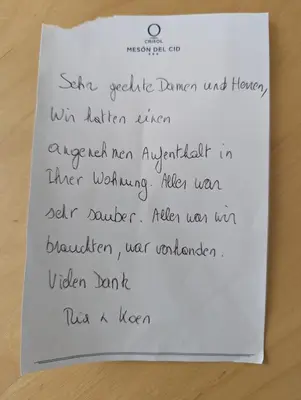 CRISOL
MESÓN DEL CID
Sehr geehrte Damen und Herren,
Wir hatten einen
angenehmen Aufenthalt in
Ihrer Wohnung. Alles war
sehr sauber. Alles was wir
brauchten, war vorhanden.
Vielen Dank
& Koen